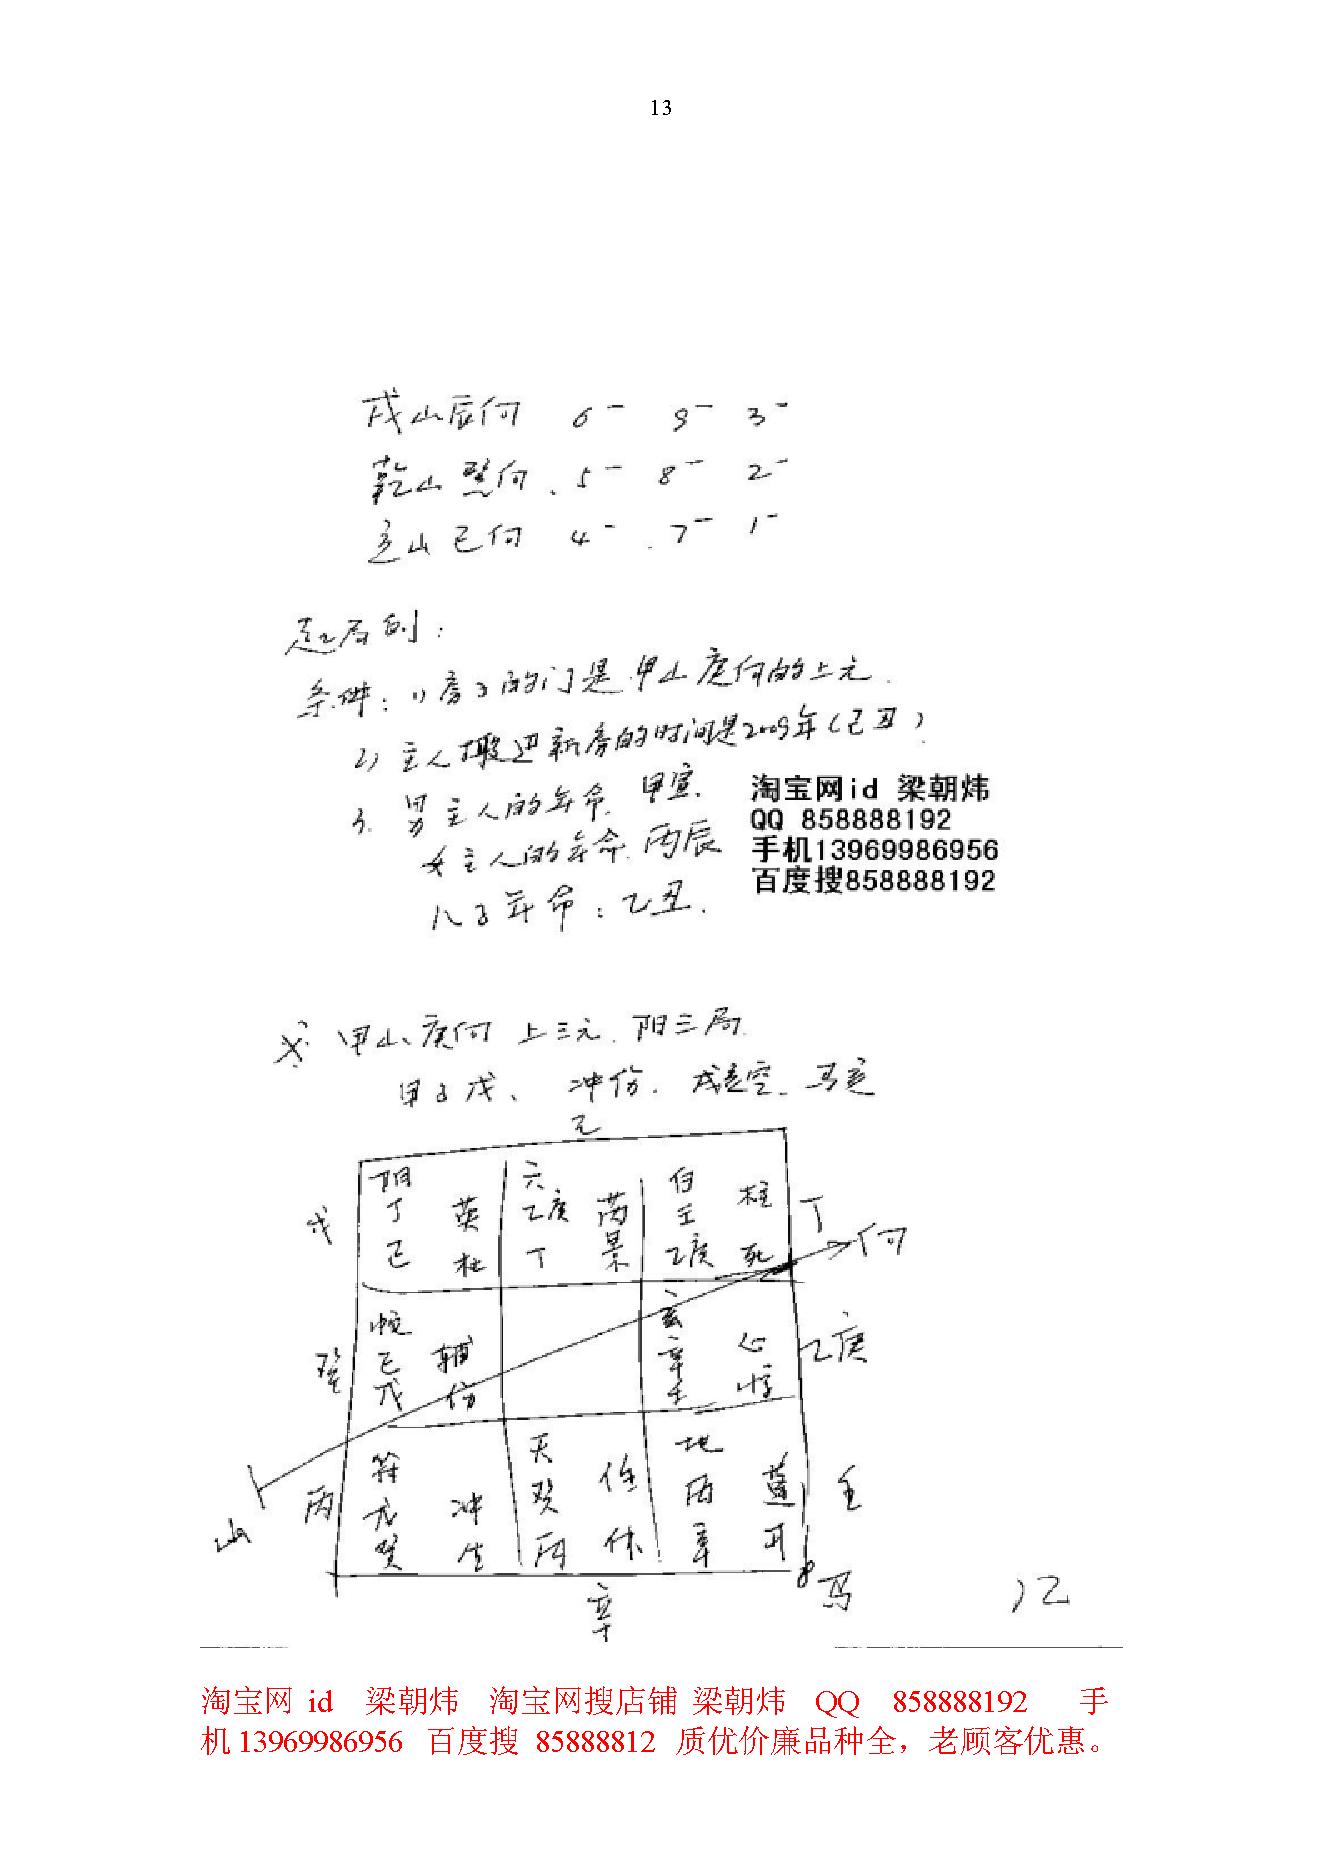 13
戌山辰向 6- 9- 3-
乾山巽向 . 5- 8- 2-
亥山巳向 4- . 7- 1-
起局例:
条件: 1)房子的门是甲山庚向的上元.
2) 主人搬迁新房的时间是2009年(己丑)
3. 男主人的年命. 甲寅.
女主人的年命. 丙辰
儿子年命: 乙丑.
淘宝网id 梁朝炜
QQ 858888192
手机13969986956
百度搜858888192
甲山、庚向 上三元. 阳三局.
甲子戊、 冲伤. 戌亥空. 马
己
阳 六 白 柱
戊 丁 英 乙庚 芮 壬 丁
己 杜 丁 景 乙庚 死 向
玄
己 辅 辛 心 乙庚
癸 戊 伤 壬 惊
符 天 地
丙 冲 癸 任 丙 蓬 壬
山 癸 生 丙 休 辛 开
辛 马 12
淘宝网 id 梁朝炜 淘宝网搜店铺 梁朝炜 QQ 858888192 手
机 13969986956 百度搜 85888812 质优价廉品种全，老顾客优惠。